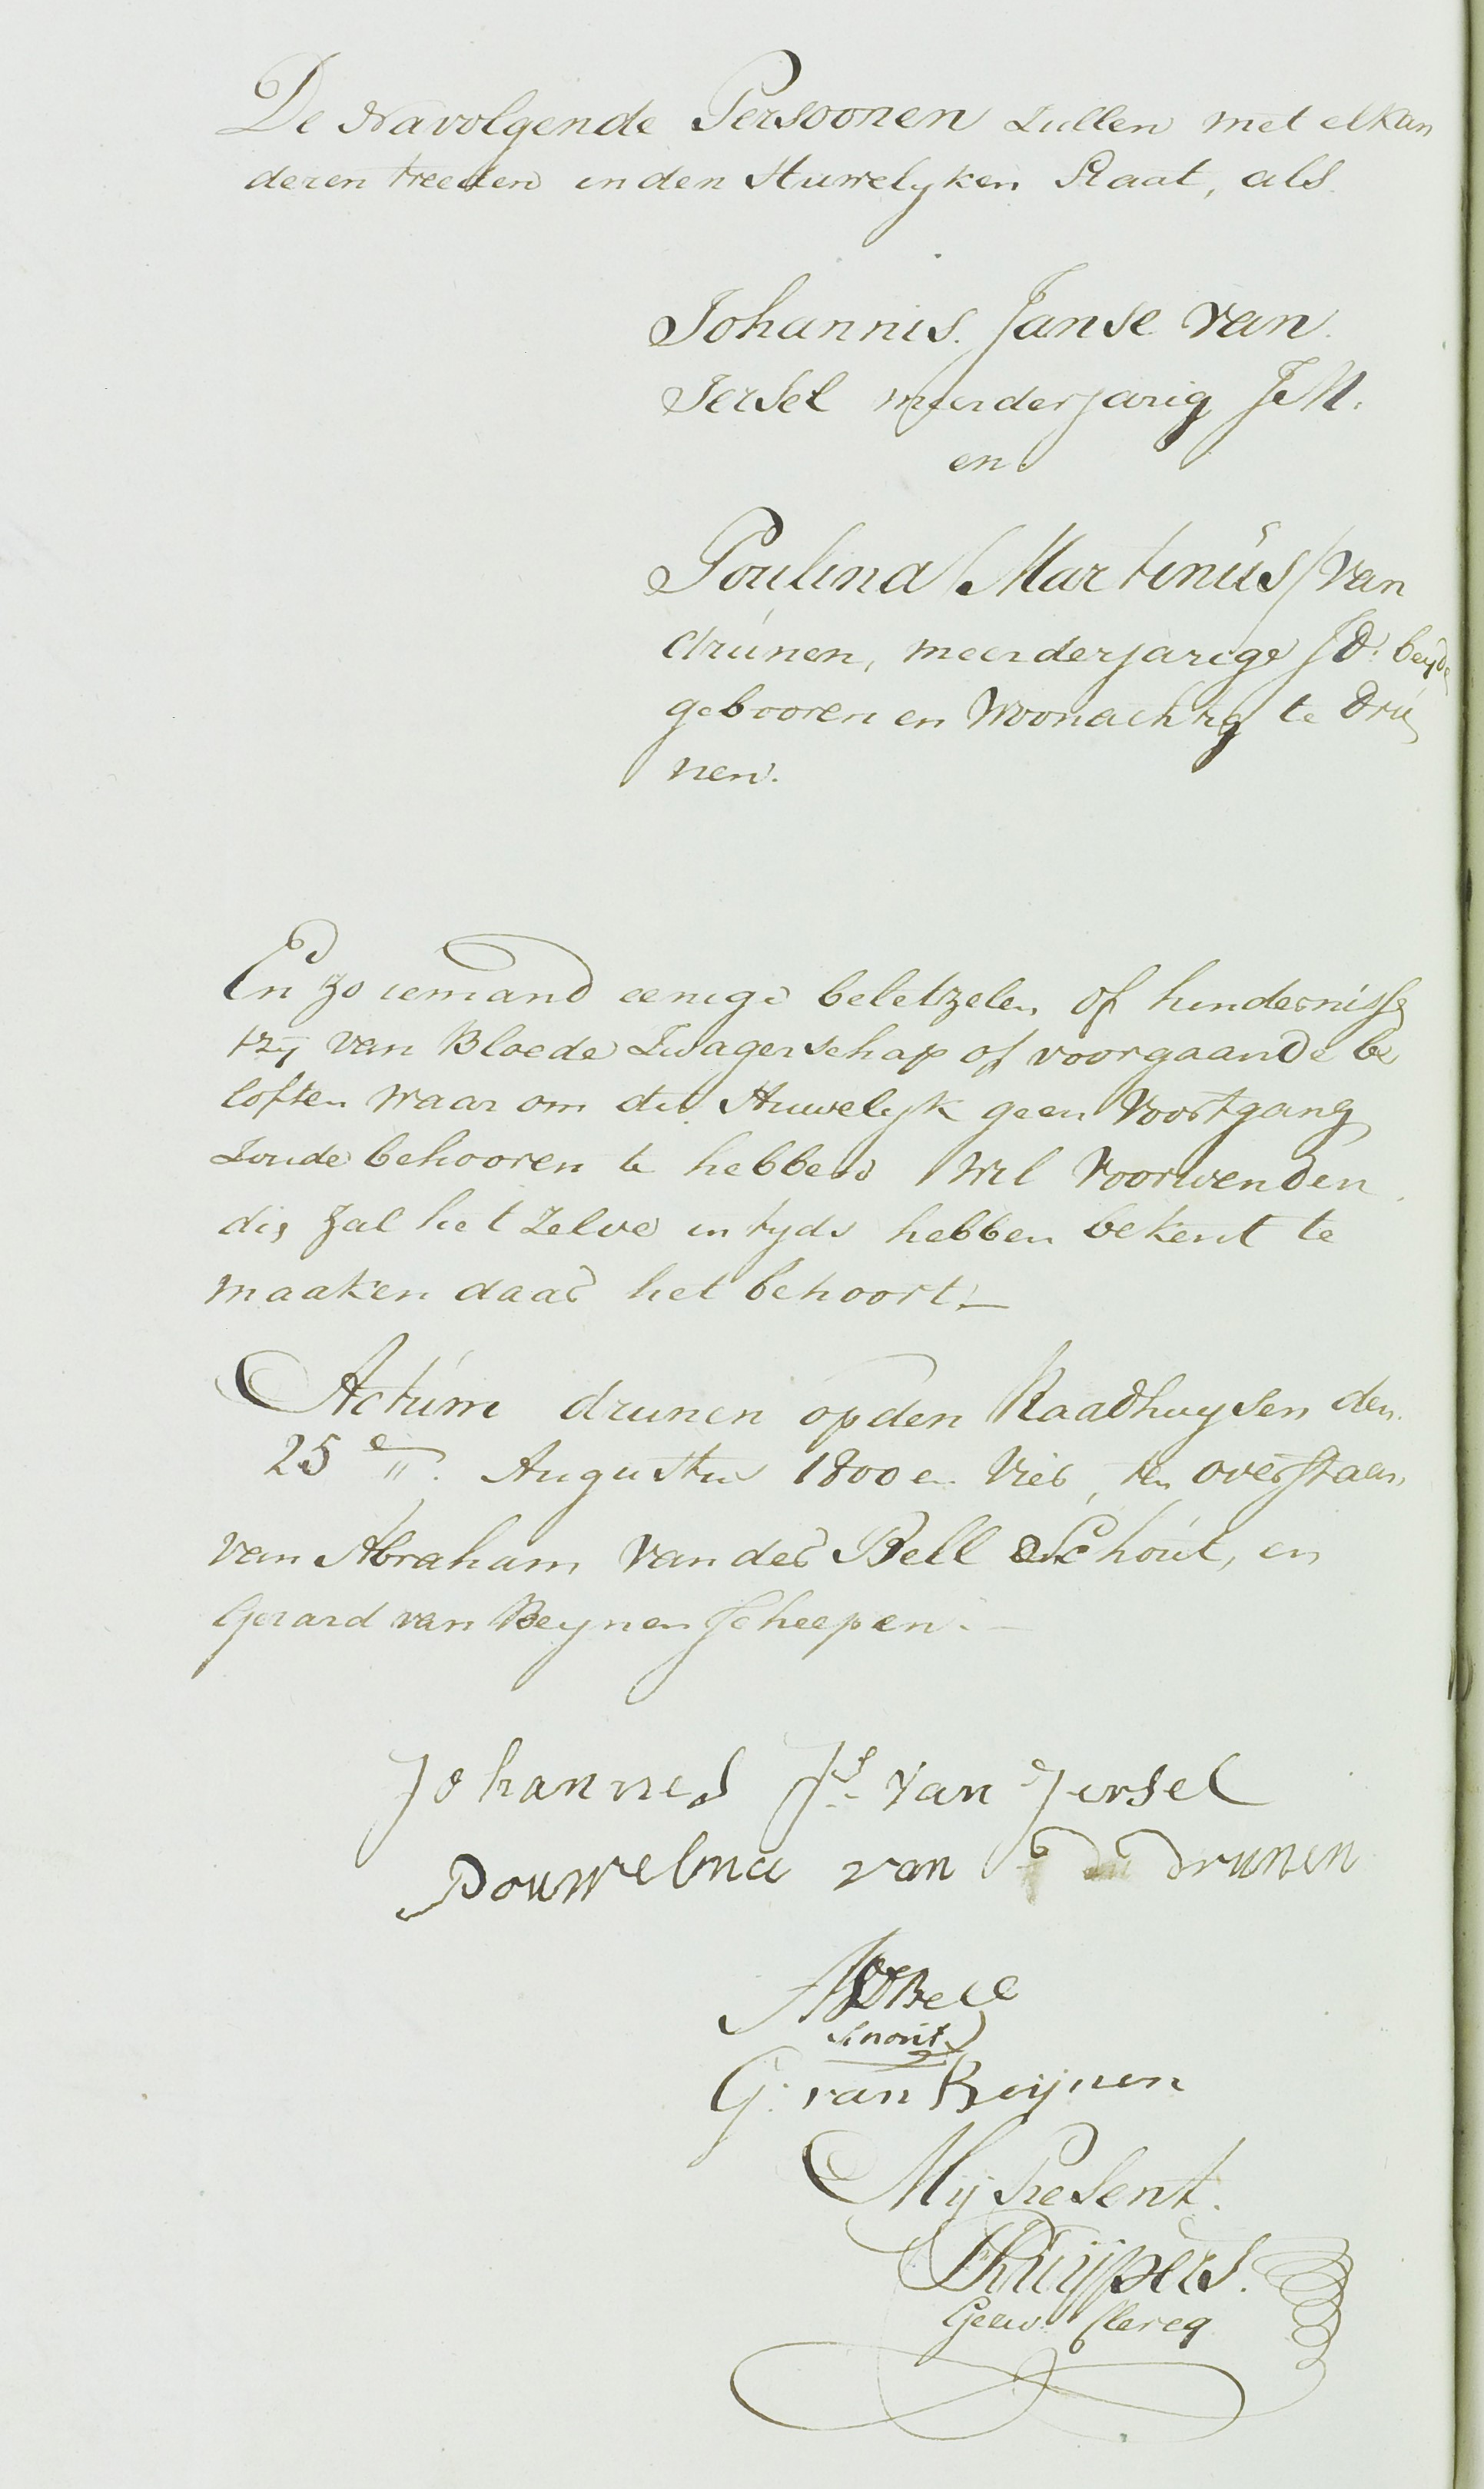 De Navolgende Persoonen zullen met elkan
deren treeden in den Huwelyken Staat, als
Johannis Janse van
Iersel meerderjarig J.M.
en
Poulina Martinus van
drunen, meerderjarige J.D. beyde
gebooren en Woonachtig te Dru
nen.
En zo iemand eenige beletzelen of hindernisse
tzy van Bloede Zwagerschap of voorgaande be
loften waar om dit Huwelyk geen Voortgang
Zoude behooren te hebben Wil Voorwenden
die zal het zelve in tyds hebben bekent te
maaken daar het behoort.
Actum drunen op den Raadhuysen den
25e Augustus 1800 en Vier, ten overstaan
van Abraham van der Bell Schout, en
Gerard van Beynen Scheepen.
Johannes Js van Iersel
Pouwelina van Drunen
AVDBell
Schout
G. van Beijnen
Mij Present.
Kuijpers.
Gesw. Clercq